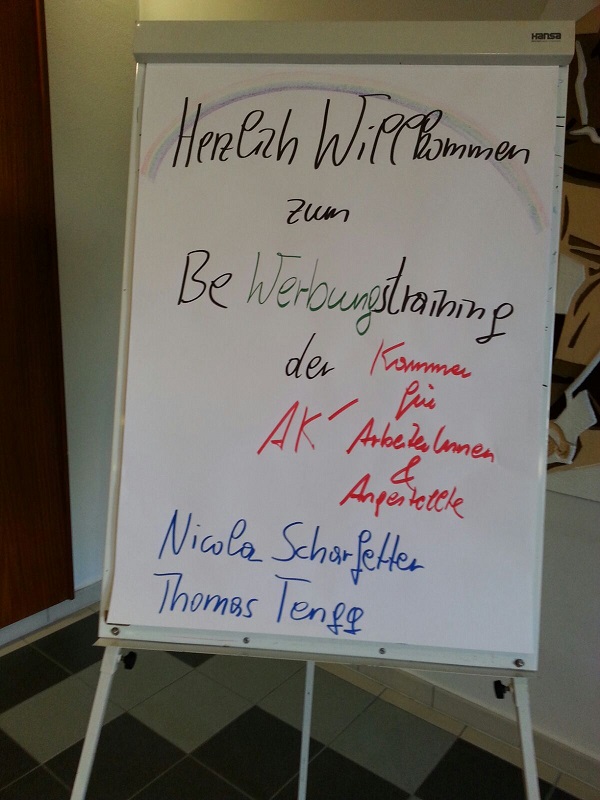 Hansa
Herzlich Willkommen
zum
Be Werbungstraining
der Kammer
für
AK ArbeiterInnen
&
Angestellte
Nicola Scharfetter
Thomas Tengg